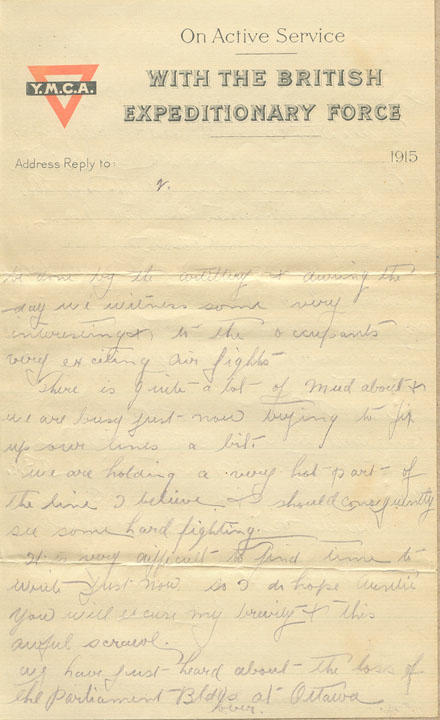 On Active Service
WITH THE BRITISH
EXPEDITIONARY FORCE
Y.M.C.A.
Address Reply to:
1915
2.
be done by the artillery & during the
day we witness some very
interesting & to the occupants
very exciting air fights
There is quite a lot of Mud about &
we are busy just now trying to fix
up our lines a bit.
We are holding a very hot part of
the line I believe & should consequently
see some hard fighting.
It is very difficult to find time to
write just now so I do hope Auntie
you will excuse my brevity & this
awful scrawl.
We have just heard about the loss of
the Parliament Bldgs at Ottawa
over.